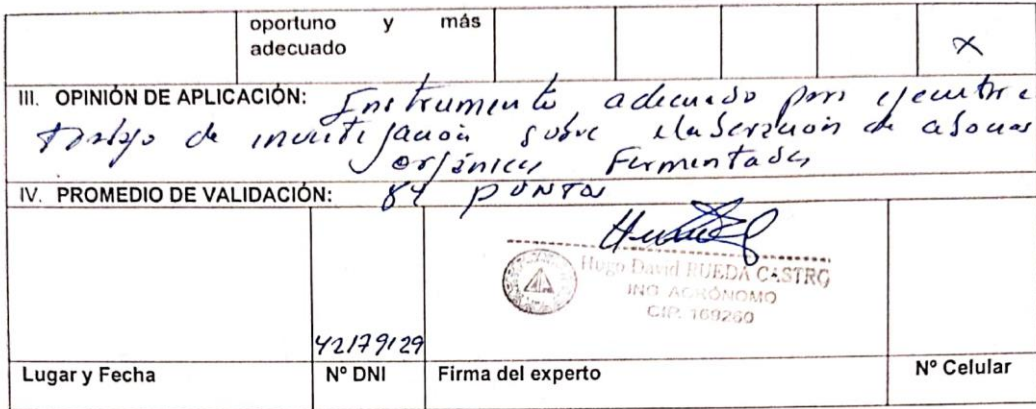 oportuno y más
adecuado
X
III. OPINIÓN DE APLICACIÓN: Instrumento adecuado para ejecutar e
trabajo de investigación sobre elaboración de abonos
orgánicos Fermentados
IV. PROMEDIO DE VALIDACIÓN: 84 PUNTOS
Hugo David RUEDA CASTRO
ING. AGRÓNOMO
CIP. 169260
42179129
Lugar y Fecha
Nº DNI
Firma del experto
Nº Celular